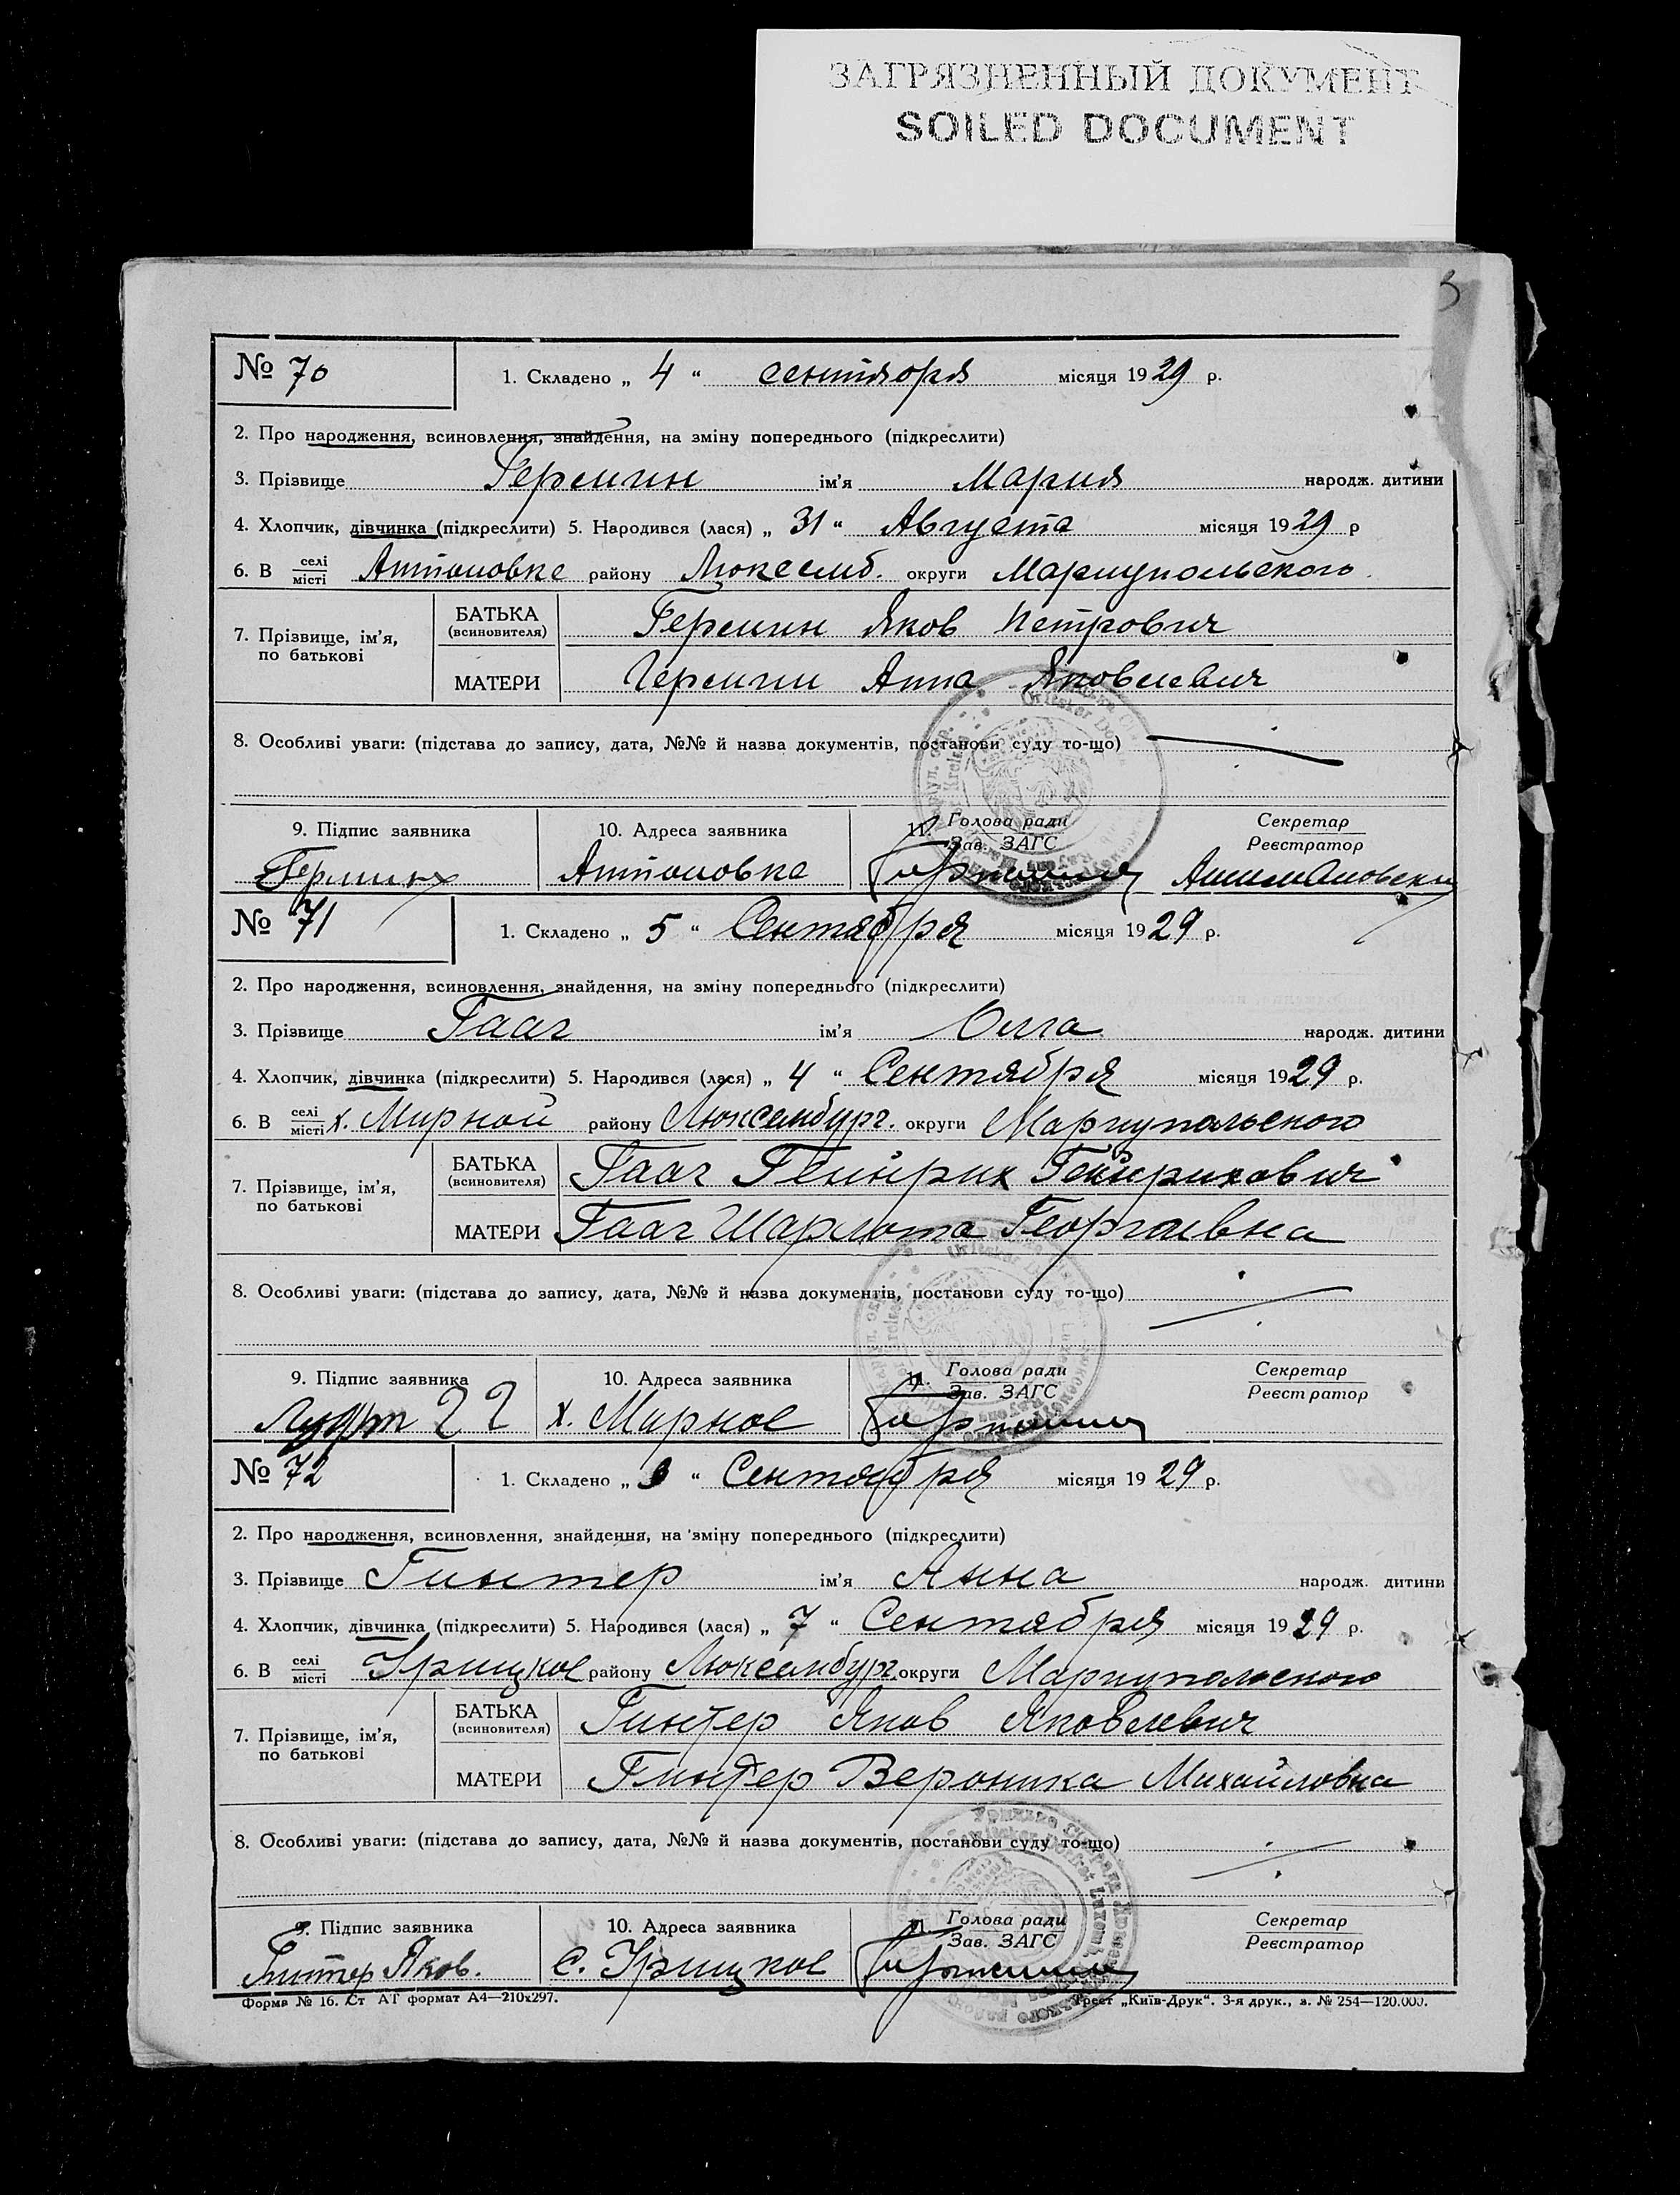 ЗАГРЯЗНЕННЫЙ ДОКУМЕНТ
SOILED DOCUMENT
№ 70 1. Складено „ 4 “ сентября місяця 1929 р.
2. Про народження, всиновлення, знайдення, на зміну попереднього (підкреслити)
3. Прізвище ім’я Мария народж. дитини
4. Хлопчик, дівчинка (підкреслити) 5. Народився (лася) „ 31 “ Августа місяця 1929 р
6. В селі місті Антоновке району Люксемб. округи Мариупольского
7. Прізвище, ім’я, по батькові
БАТЬКА (всиновителя) Яков Петрович
МАТЕРИ Анна Яковлевич
8. Особливі уваги: (підстава до запису, дата, №№ й назва документів, постанови суду то-що)
9. Підпис заявника 10. Адреса заявника 11. Голова ради Зав. ЗАГС Секретар Реєстратор
Антоновка
№ 71 1. Складено „ 5 “ Сентября місяця 1929 р.
2. Про народження, всиновлення, знайдення, на зміну попереднього (підкреслити)
3. Прізвище Гааг ім’я Олга народж. дитини
4. Хлопчик, дівчинка (підкреслити) 5. Народився (лася) „ 4 “ Сентября місяця 1929 р.
6. В селі місті х. Мирной району Люксембург. округи Мариупольского
7. Прізвище, ім’я, по батькові
БАТЬКА (всиновителя) Гааг Гейнрих Гейнрихович
МАТЕРИ Гааг Шарлота Георгиевна
8. Особливі уваги: (підстава до запису, дата, №№ й назва документів, постанови суду то-що)
9. Підпис заявника 10. Адреса заявника 11. Голова ради Зав. ЗАГС Секретар Реєстратор
х. Мирное
№ 72 1. Складено „ “ Сентября місяця 1929 р.
2. Про народження, всиновлення, знайдення, на зміну попереднього (підкреслити)
3. Прізвище Гинтер ім’я Анна народж. дитини
4. Хлопчик, дівчинка (підкреслити) 5. Народився (лася) „ 7 “ Сентября місяця 1929 р.
6. В селі місті Урицкое району Люксембург. округи Мариупольского
7. Прізвище, ім’я, по батькові
БАТЬКА (всиновителя) Гинтер Яков Яковлевич
МАТЕРИ Гинтер Вероника Михайловна
8. Особливі уваги: (підстава до запису, дата, №№ й назва документів, постанови суду то-що)
9. Підпис заявника 10. Адреса заявника 11. Голова ради Зав. ЗАГС Секретар Реєстратор
Гинтер Яков. с. Урицкое
Форма № 16. Ст АТ формат А4—210х297. Трест „Київ-Друк“. 3-я друк., з. № 254—120.000.